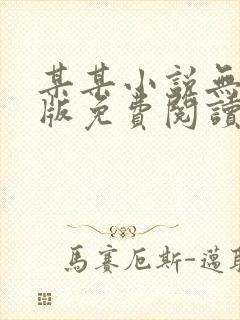 某某小說無
版免費閱讀
馬賽厄斯-邁耶